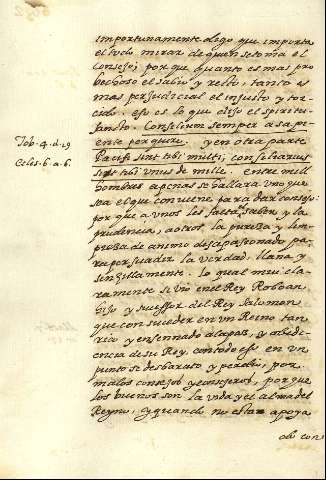 importunamente digo que importa
el todo mirar de quien se toma el
Consejo; porque quanto es mas pro
bechoso el sabio y recto, tanto es
mas perjudicial el injusto y tor-
cido. eso es lo que dijo el spiritu
santo. Consilium semper a sapi
ente perquire. y en otra parte
Pacifici sint tibi multi, consiliarius
sint tibi unus de mille. entre mill
hombres apenas se hallara uno que
sea el que conviene para dar consejo:
porque a unos les falta saber y la
prudencia, a otros la pureza y lim-
pieza de animo desapasionado pa-
ra persuader la verdad, llana y
senzillamente. lo qual mui cla-
ramente se vio en el Rey Roboan,
hijo y sucessor del Rey Salomon
que con suceder en un Reino tan
rico y ensennado a la paz, y obedi-
encia de su Rey, con todo eso en un
punto se desbarato y perdio, por
malos consejos y consejeros, porque
los buenos son la vida y el alma del
Reyno, y quando no estan apoya
do con
Tob. 4. d. 19
Ecles. 6. a. 6.